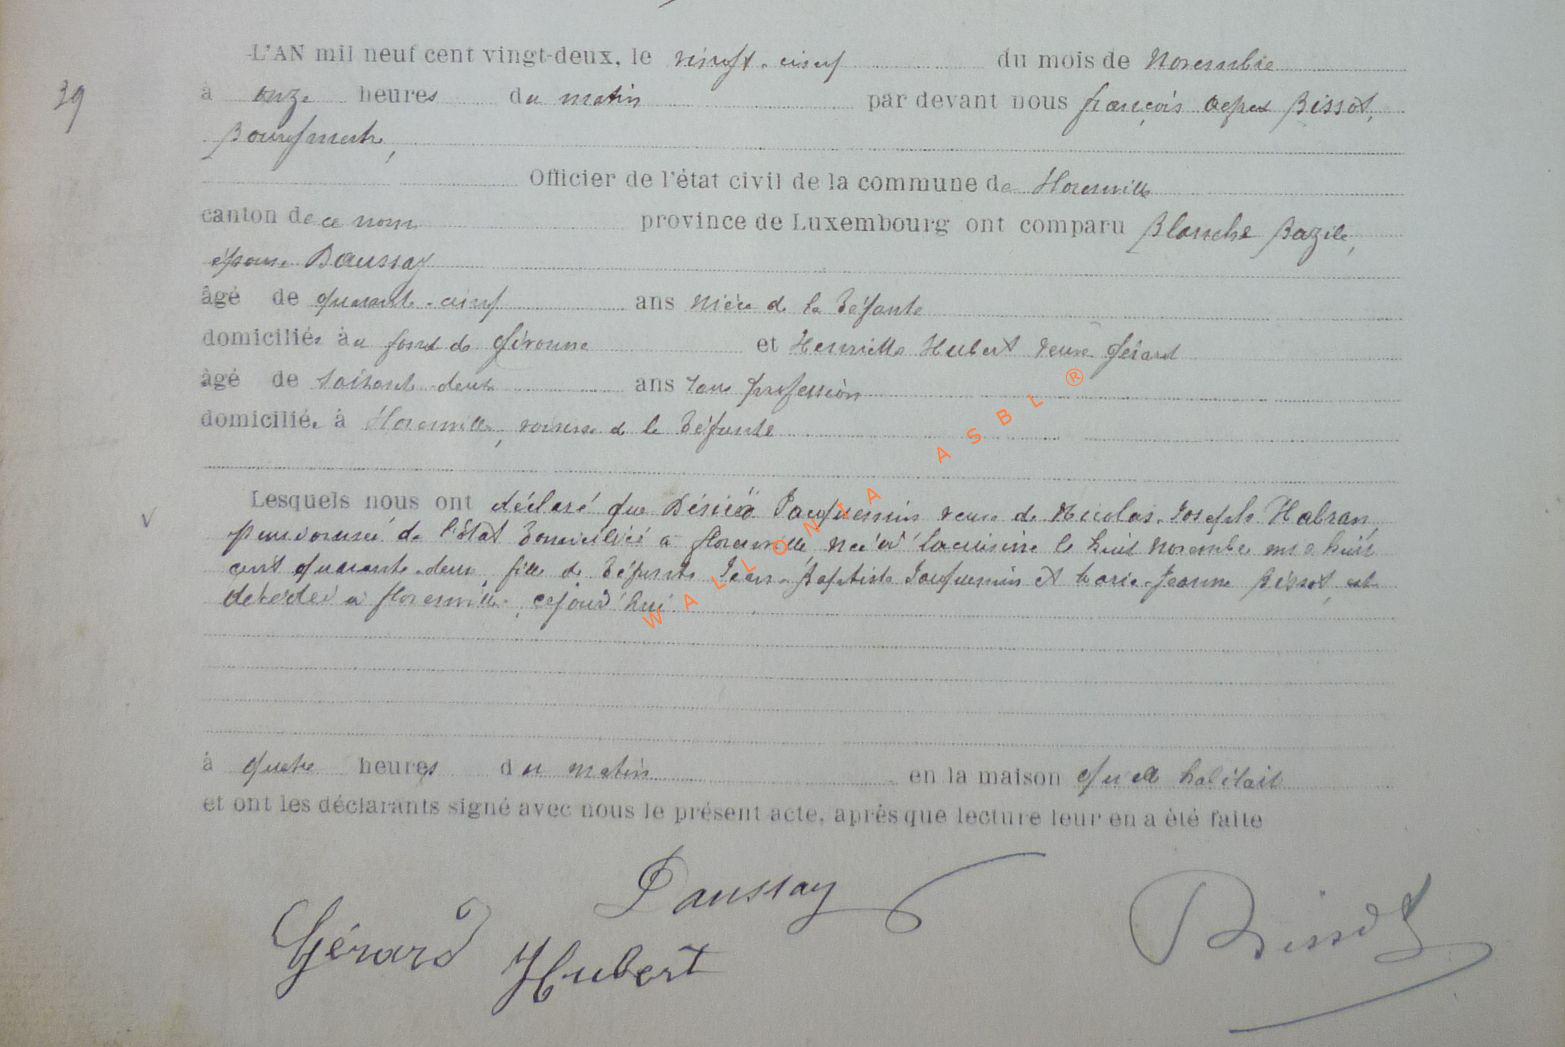 39
L'AN mil neuf cent vingt-deux, le vingt-cinq du mois de Novembre
à onze heures du matin par devant nous françois Bissot,
Bourgmestre,
Officier de l'état civil de la commune de Florenville
canton de ce nom province de Luxembourg ont comparu Blanche Bazile,
épouse Daussay
âgé de quarante-cinq ans nièce de la défunte
domiciliée au fond de et Henriette Hubert veuve Gérard
âgé de soixante-deux ans sans profession
domiciliée à Florenville, voisine de la défunte
Lesquels nous ont déclaré que Désirée Jacquemin veuve de Nicolas-Joseph Habran,
pensionnée de l'état domiciliée à florenville, née à lacuisine le huit novembre mil huit
cent quarante-deux, fille de défunts Jean-Baptiste Jacquemin et Marie-Jeanne Bissot, est
décédée à florenville, cejourd'hui
à quatre heures du matin en la maison qu'elle habitait
et ont les déclarants signé avec nous le présent acte, après que lecture leur en a été faite
Daussay
Gérard Hubert
Bissot
WALLONIA ASBL ®